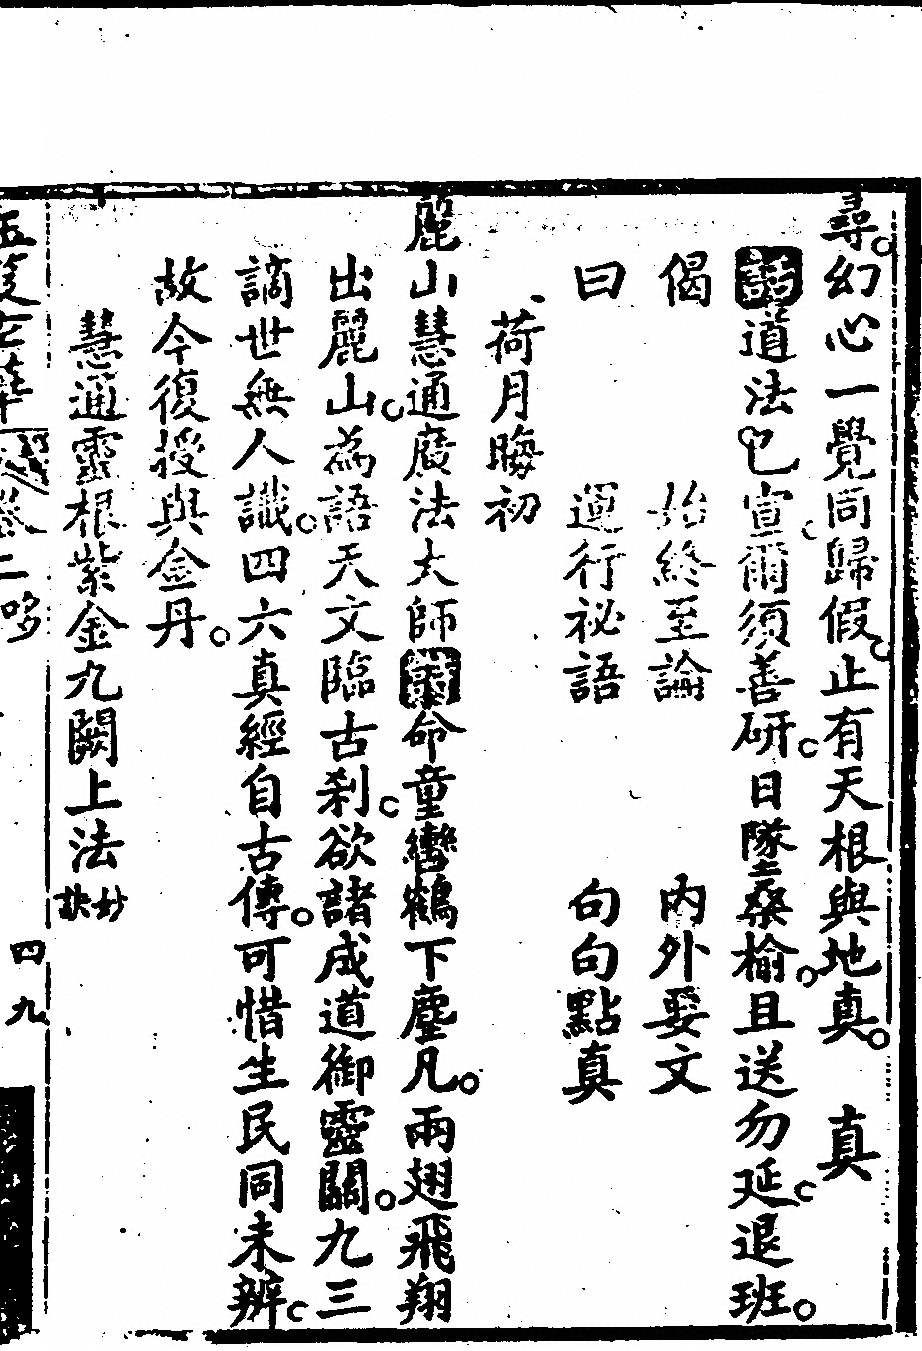 尋幻心一覺同歸假止有天根與地真　真
詩道法已宣爾須善研日墜桑榆且送勿延退班
偈　始終至論　內外娶文
曰　運行祕語　句句點真
荷月晦初
麗山慧通廣法太師命童轡鶴下塵凡兩翅飛翔
出麗山為語天文臨古剎欲諸成道御靈關九三
謫世無人讖四六真經自古傳可惜生民同未辨
故今復授與金丹
慧通靈根紫金九闕上法妙訣
卷二
四九